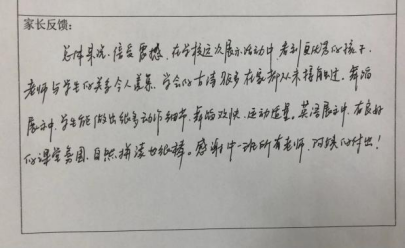 家长反馈:
总体来说,倍受震撼,在学校这次展示活动中,看到更优秀的孩子,
老师与学生的关系令人羡慕,学会的古诗很多在家都从未接触过,舞蹈
展示中,学生能做出很多动作细节,舞蹈欢快,运动适量。英语展示中,在良好
的课堂氛围,自然拼读也很棒。感谢中一班所有老师,阿姨的付出!